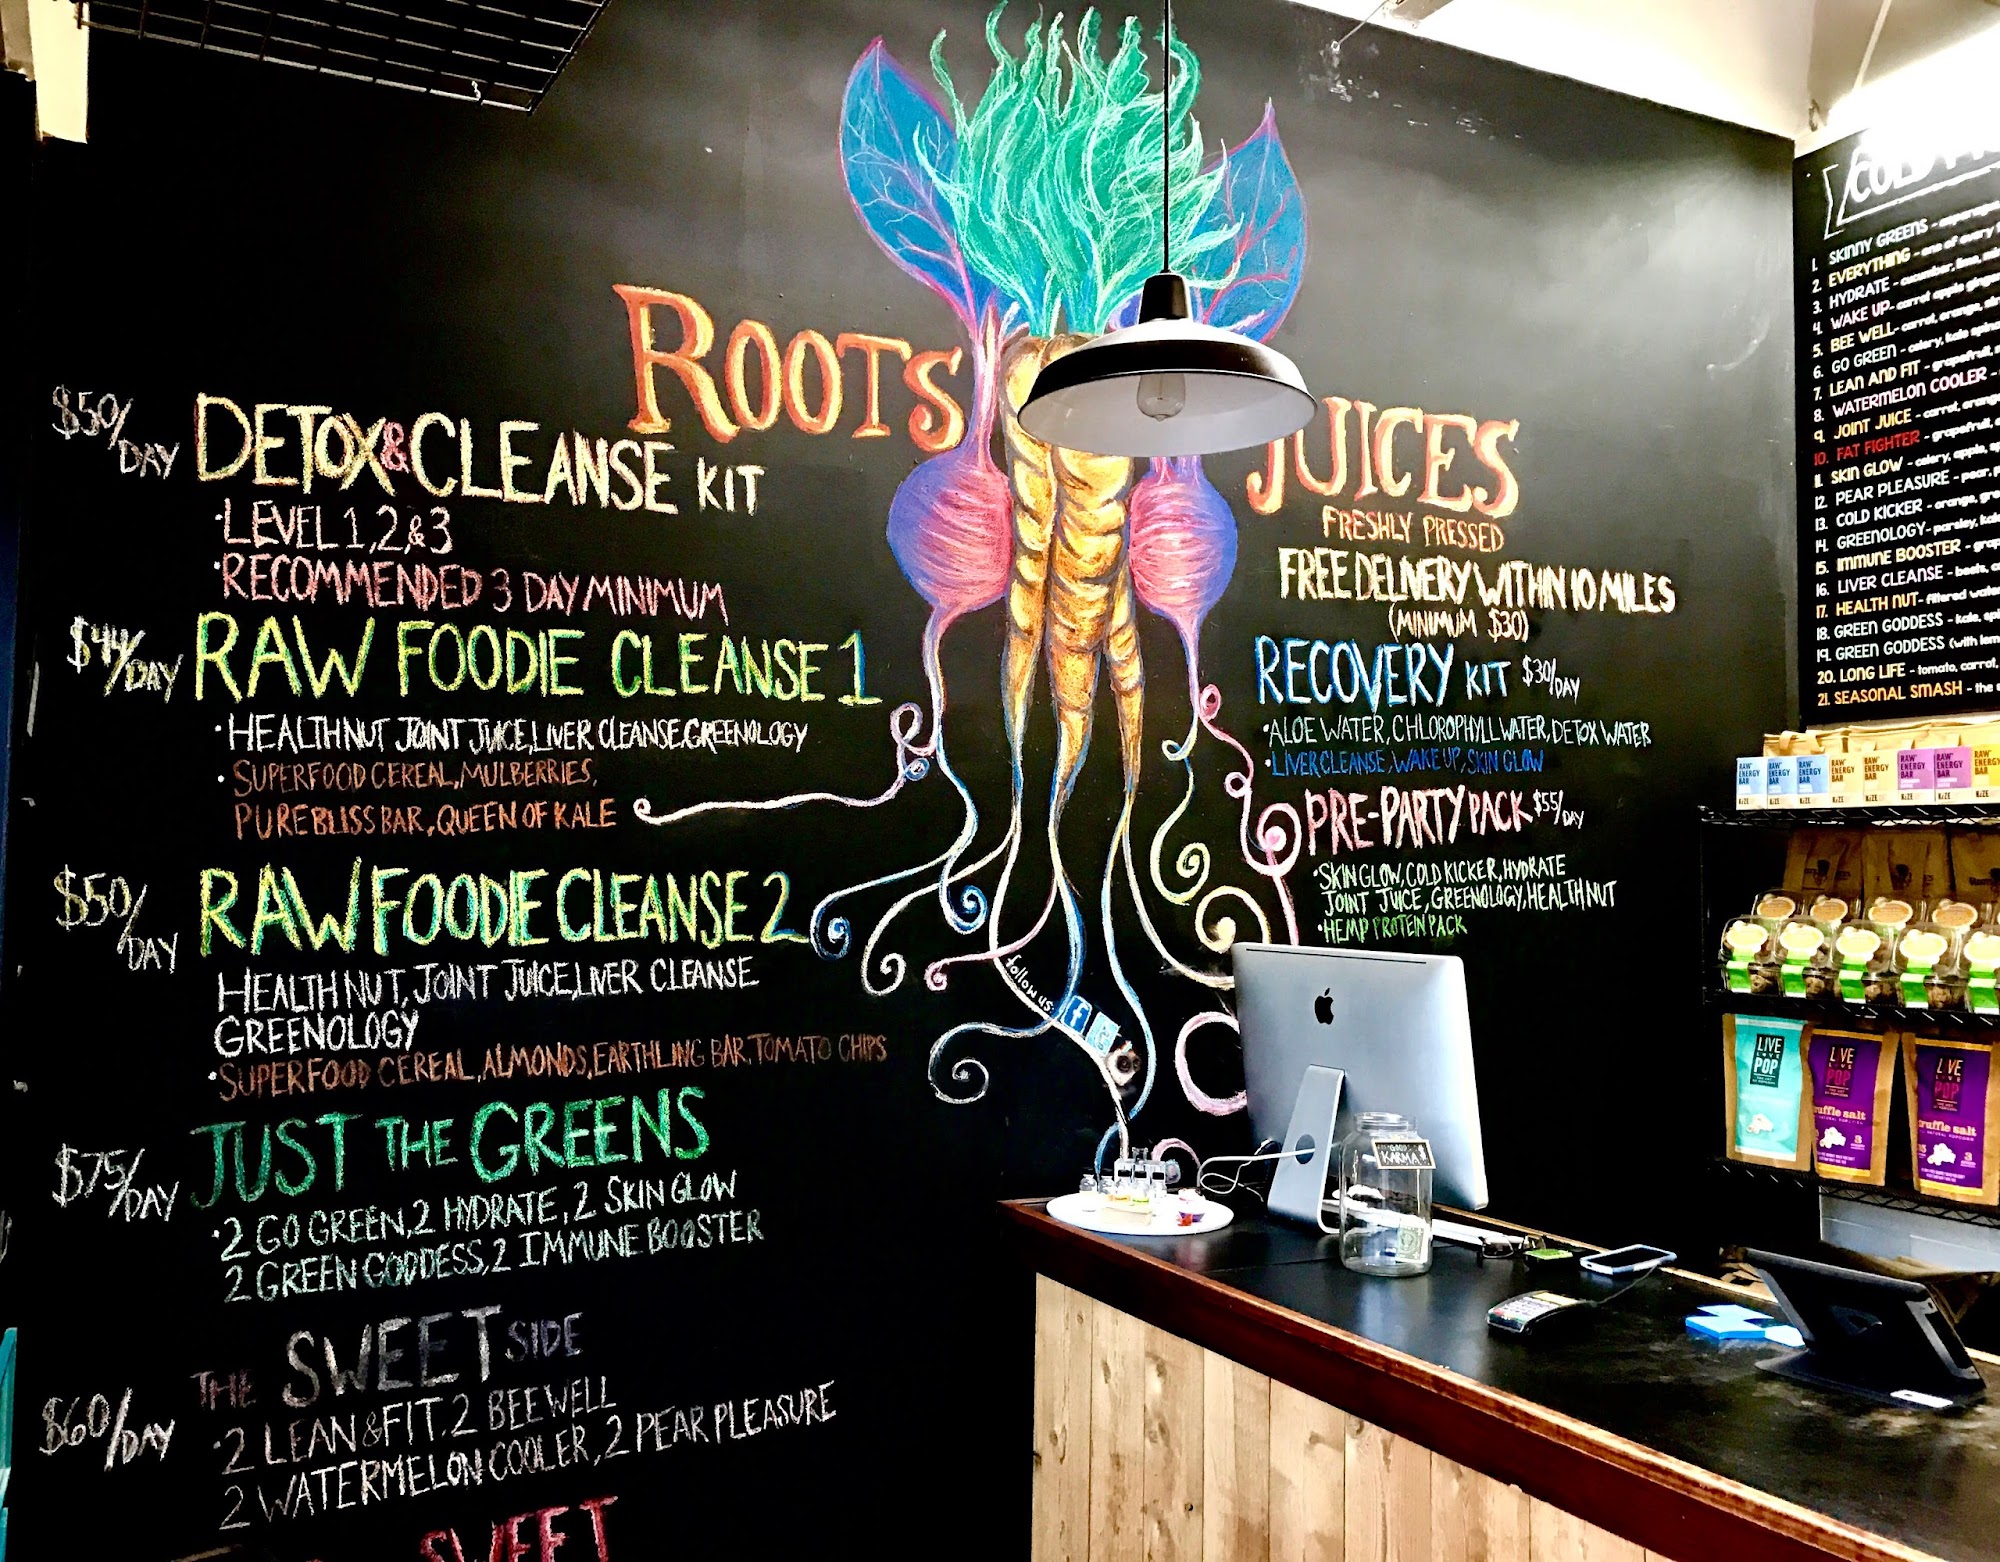 ROOTS
JUICES
FRESHLY PRESSED
$50/DAY
DETOX & CLEANSE KIT
·LEVEL 1, 2, & 3
·RECOMMENDED 3 DAY MINIMUM
$44/DAY
RAW FOODIE CLEANSE 1
·HEALTH NUT, JOINT JUICE, LIVER CLEANSE, GREENOLOGY
·SUPERFOOD CEREAL, MULBERRIES,
PURE BLISS BAR, QUEEN OF KALE
$50/DAY
RAW FOODIE CLEANSE 2
HEALTH NUT, JOINT JUICE, LIVER CLEANSE
GREENOLOGY
·SUPERFOOD CEREAL, ALMONDS, EARTHLING BAR, TOMATO CHIPS
$75/DAY
JUST THE GREENS
·2 GO GREEN, 2 HYDRATE, 2 SKIN GLOW
2 GREEN GODDESS, 2 IMMUNE BOOSTER
$60/DAY
THE SWEET SIDE
·2 LEAN & FIT, 2 BEE WELL
2 WATERMELON COOLER, 2 PEAR PLEASURE
SWEET
FREE DELIVERY WITHIN 10 MILES
(MINIMUM $30)
RECOVERY KIT $30/DAY
·ALOE WATER, CHLOROPHYLL WATER, DETOX WATER
·LIVER CLEANSE, WAKE UP, SKIN GLOW
PRE-PARTY PACK $55/DAY
·SKIN GLOW, COLD KICKER, HYDRATE
JOINT JUICE, GREENOLOGY, HEALTH NUT
·HEMP PROTEIN PACK
follow us
f
KARMA
COLD
1. SKINNY GREENS - asparagus,
2. EVERYTHING - one of every
3. HYDRATE - cucumber, lime,
4. WAKE UP - carrot apple ginger
5. BEE WELL - carrot, orange,
6. GO GREEN - celery, kale
7. LEAN AND FIT - grapefruit,
8. WATERMELON COOLER -
9. JOINT JUICE - carrot, orange
10. FAT FIGHTER - grapefruit,
11. SKIN GLOW - celery, apple,
12. PEAR PLEASURE - pear,
13. COLD KICKER - orange,
14. GREENOLOGY - parsley,
15. IMMUNE BOOSTER -
16. LIVER CLEANSE - beets,
17. HEALTH NUT - filtered water
18. GREEN GODDESS - kale,
19. GREEN GODDESS (with
20. LONG LIFE - tomato, carrot,
21. SEASONAL SMASH - the
RAW ENERGY BAR
KiZE
RAW ENERGY BAR
KiZE
RAW ENERGY BAR
KiZE
RAW ENERGY BAR
KiZE
RAW ENERGY BAR
KiZE
RAW ENERGY BAR
KiZE
RAW ENERGY BAR
KiZE
LIVE LOVE POP
LIVE LOVE POP
truffle salt
3
LIVE LOVE POP
truffle salt
3